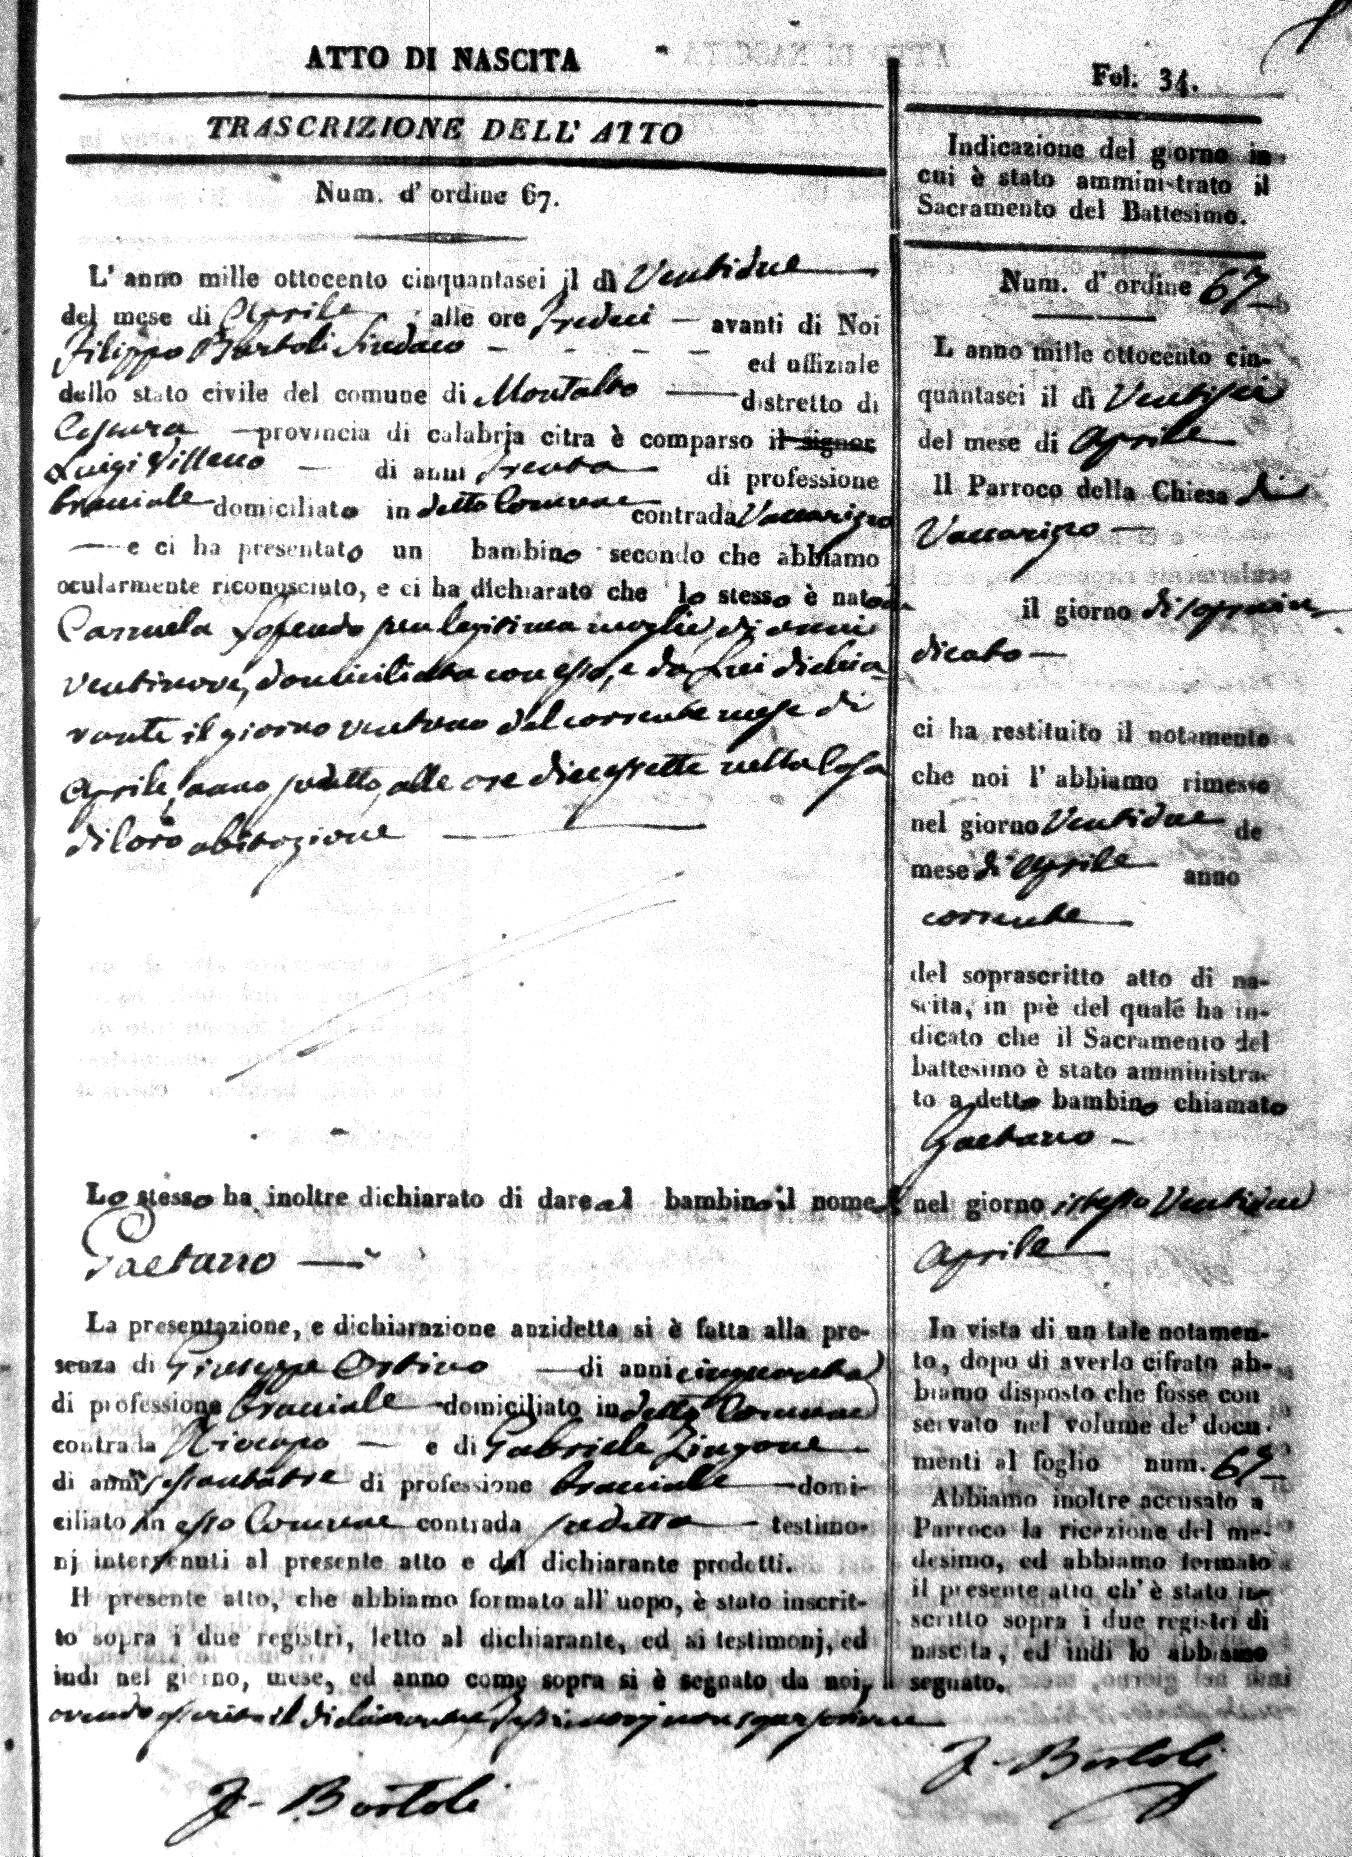 ATTO DI NASCITA
TRASCRIZIONE DELL' ATTO
Num. d' ordine 67.
L' anno mille ottocento cinquantasei il dì Ventidue
del mese di Aprile alle ore Tredeci avanti di Noi
Filippo Bartoli Sindaco
ed uffiziale
dello stato civile del comune di Montalto distretto di
Cosenza provincia di calabria citra è comparso il signor
Luigi Villano di anni Trenta di professione
bracciale domiciliato in detto Comune contrada Vaccarizzo
e ci ha presentato un bambino secondo che abbiamo
ocularmente riconosciuto, e ci ha dichiarato che lo stesso è nato da
Carmela sua legitima moglie, di anni
ventinove, domiciliata con esso, e da Lui dichia-
rante il giorno ventuno del corrente mese di
Aprile, anno sudetto, alle ore diecessette nella Casa
di loro abitazione
Lo stesso ha inoltre dichiarato di dare al bambino il nome di
Gaetano
La presentazione, e dichiarazione anzidetta si è fatta alla pre-
senza di Giuseppe di anni cinquanta
di professione bracciale domiciliato in detto Comune
contrada e di Gabriele Zingone
di anni sessantatre di professione bracciale domi-
ciliato in esso Comune contrada sudetta testimo-
nj intervenuti al presente atto e dal dichiarante prodotti.
Il presente atto, che abbiamo formato all' uopo, è stato inscrit-
to sopra i due registri, letto al dichiarante, ed ai testimonj, ed
indi nel giorno, mese, ed anno come sopra si è segnato da noi,
avendo asserito il dichiarante Testimonj non saper scrivere
F. Bartoli
Fol. 34.
Indicazione del giorno in
cui è stato amministrato il
Sacramento del Battesimo.
Num. d' ordine 67
L anno mille ottocento cin-
quantasei il dì Ventisei
del mese di Aprile
Il Parroco della Chiesa di
Vaccarizzo
il giorno di sopra in
dicato
ci ha restituito il notamento
che noi l' abbiamo rimesso
nel giorno Ventidue de
mese di Aprile anno
corrente
del soprascritto atto di na-
scita, in piè del quale ha in-
dicato che il Sacramento del
battesimo è stato amministra-
to a detto bambino chiamato
Gaetano
nel giorno istesso Ventidue
Aprile
In vista di un tale notamen-
to, dopo di averlo cifrato ab-
biamo disposto che fosse con
servato nel volume de' docu-
menti al foglio num. 67
Abbiamo inoltre accusato a
Parroco la ricezione del me-
desimo, ed abbiamo formato
il presente atto ch' è stato in-
scritto sopra i due registri di
nascita, ed indi lo abbiamo
segnato.
F. Bartoli